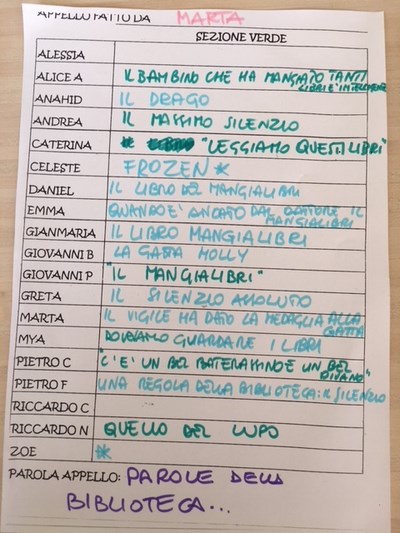 APPELLO FATTO DA MARTA
SEZIONE VERDE
ALESSIA
ALICE A IL BAMBINO CHE HA MANGIATO TANTI
LIBRI E'
ANAHID IL DRAGO
ANDREA IL MASSIMO SILENZIO
CATERINA "LEGGIAMO QUESTI LIBRI"
CELESTE FROZEN *
DANIEL IL LIBRO DEL MANGIALIBRI
EMMA QUANDO E' ANDATO DAL DOTTORE IL
MANGIALIBRI
GIANMARIA IL LIBRO MANGIALIBRI
GIOVANNI B LA GATTA MOLLY
GIOVANNI P "IL MANGIALIBRI"
GRETA IL SILENZIO ASSOLUTO
MARTA IL VIGILE HA DATO LA MEDAGLIA ALLA
GATTA
MYA DOBBIAMO GUARDARE I LIBRI
PIETRO C "C'E' UN BEL MATERASSINO E UN BEL
DIVANO"
PIETRO F UNA REGOLA DELLA BIBLIOTECA: IL SILENZIO
RICCARDO C
RICCARDO N QUELLO DEL LUPO
ZOE *
PAROLA APPELLO: PAROLE DELLA
BIBLIOTECA...